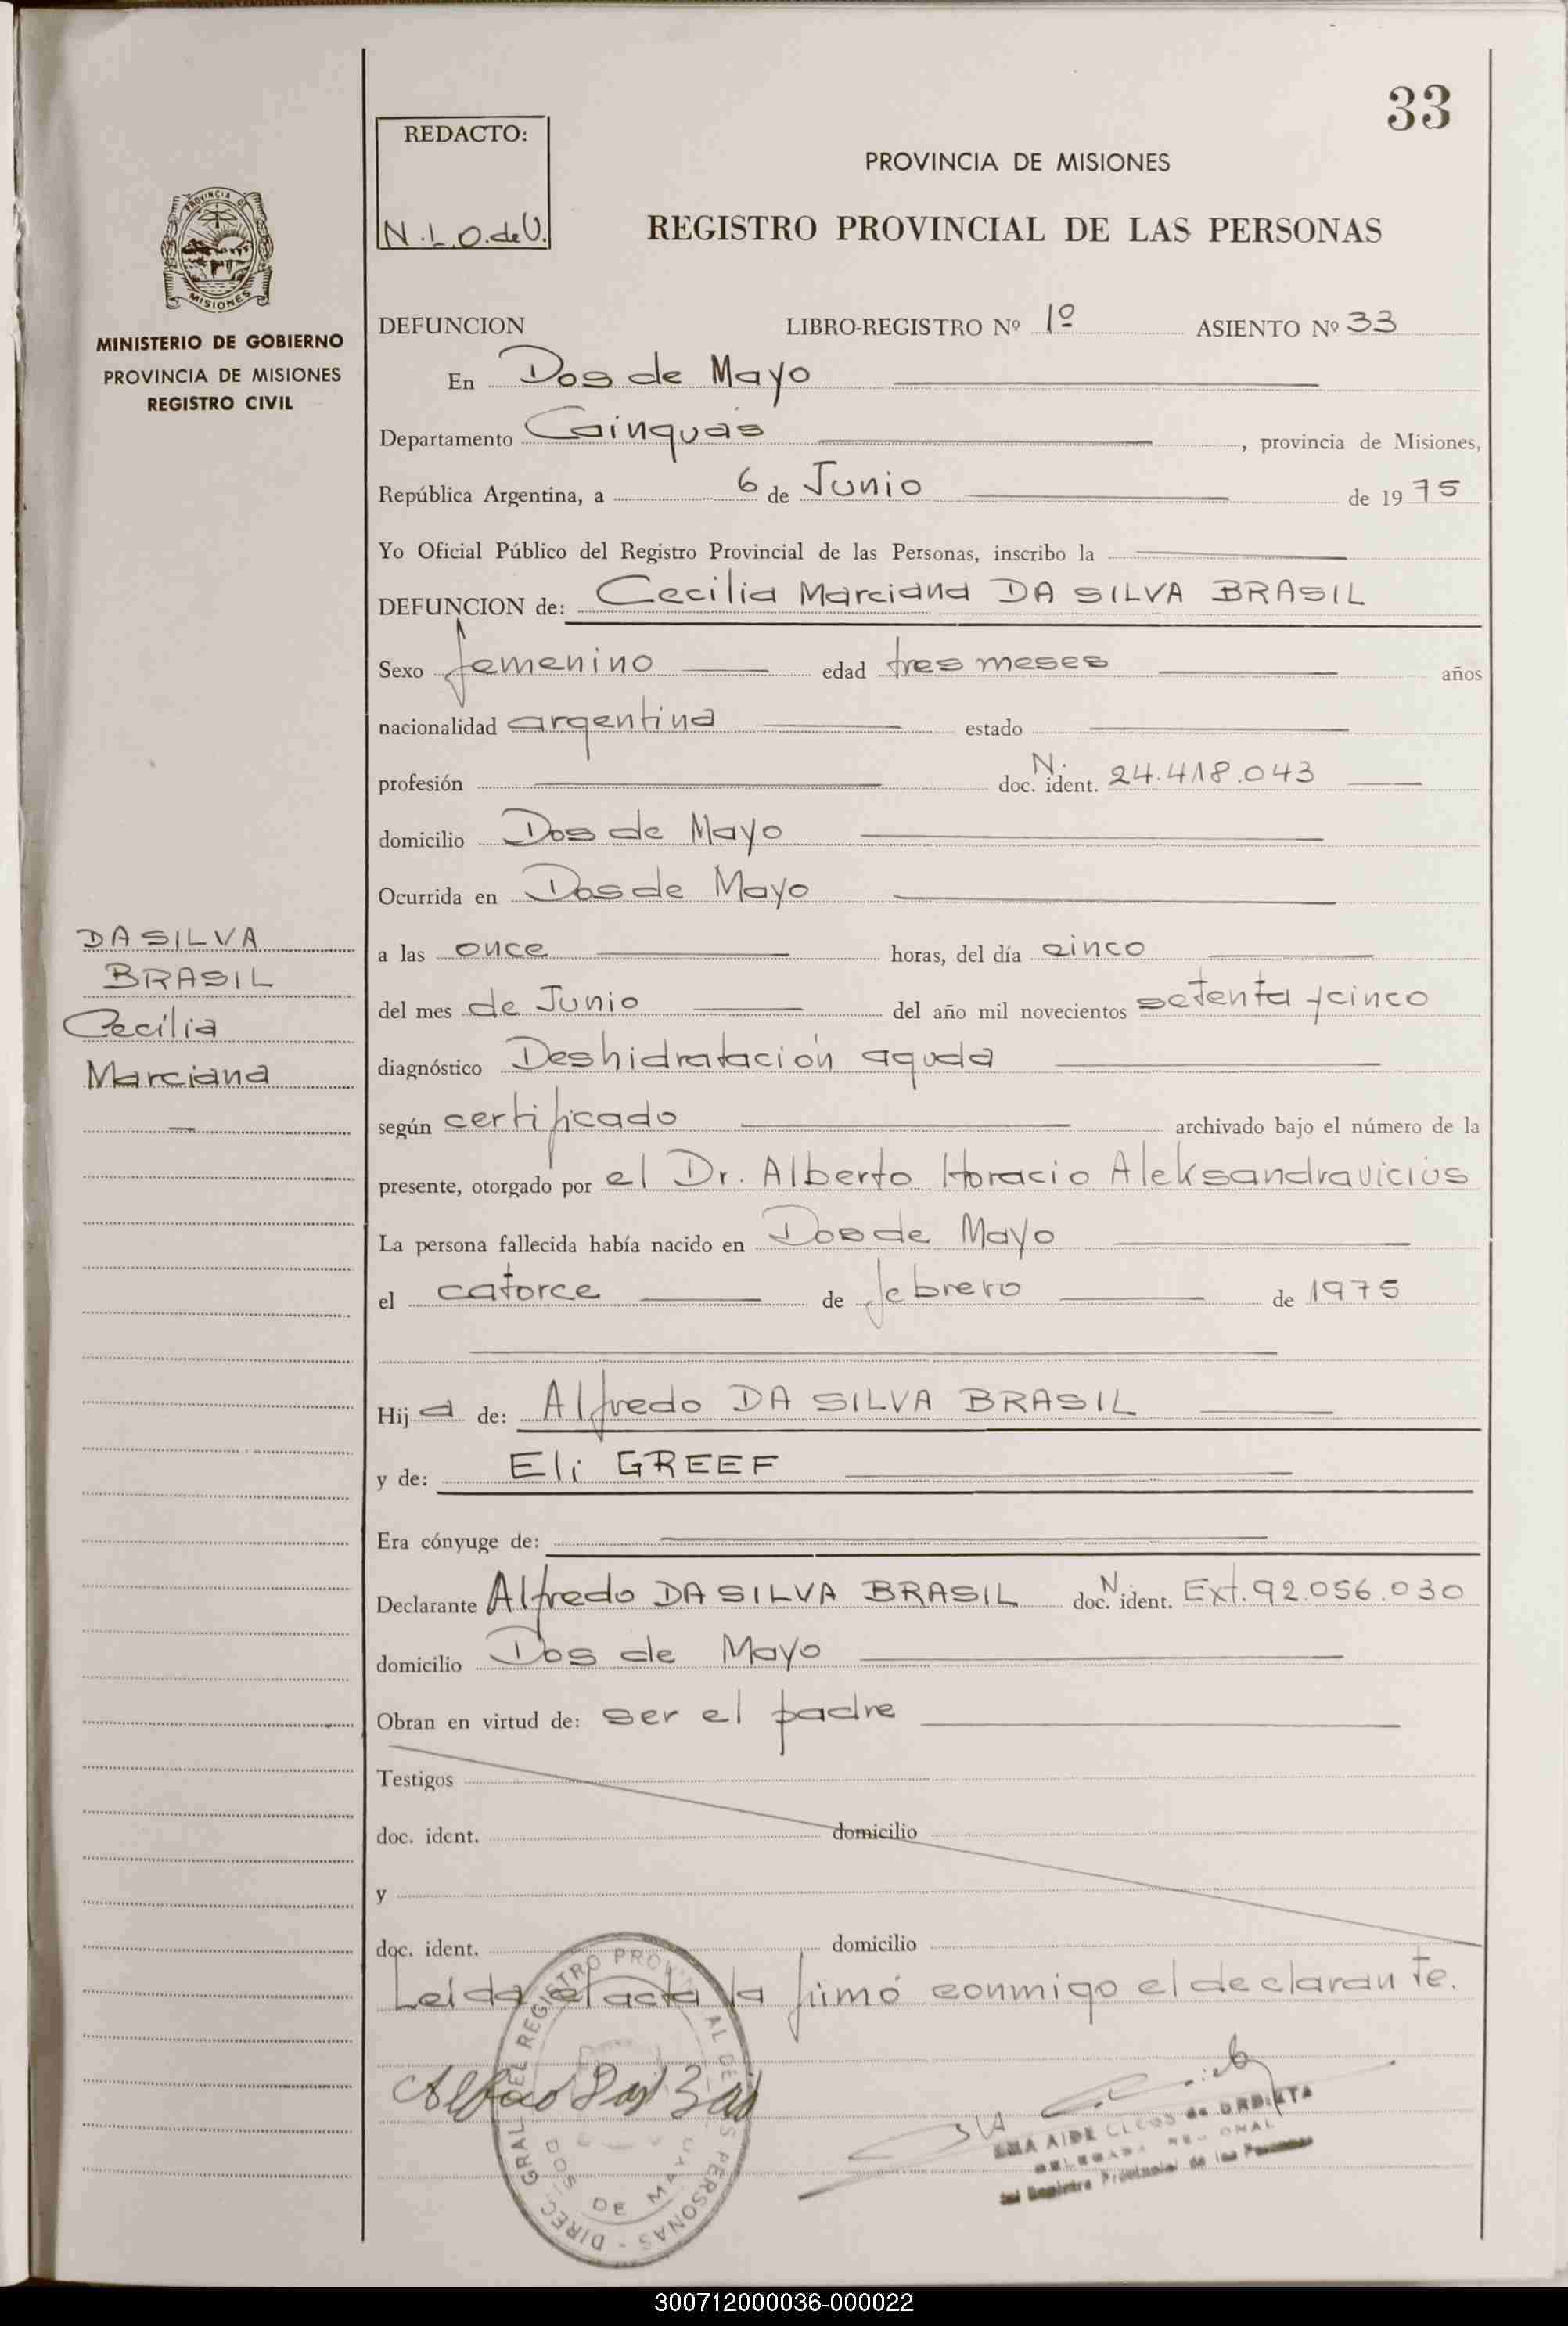 33
REDACTO:
N.L.O.deU.
PROVINCIA DE MISIONES
REGISTRO PROVINCIAL DE LAS PERSONAS
PROVINCIA DE
MISIONES
MINISTERIO DE GOBIERNO
PROVINCIA DE MISIONES
REGISTRO CIVIL
DEFUNCION LIBRO-REGISTRO Nº 1º ASIENTO Nº 33
En Dos de Mayo
Departamento Cainguás , provincia de Misiones,
República Argentina, a 6 de Junio de 1975
Yo Oficial Público del Registro Provincial de las Personas, inscribo la
DEFUNCION de: Cecilia Marciana DA SILVA BRASIL
Sexo femenino edad tres meses años
nacionalidad argentina estado
profesión doc. N. ident. 24.418.043
domicilio Dos de Mayo
Ocurrida en Dos de Mayo
DA SILVA
BRASIL
Cecilia
Marciana
a las once horas, del día cinco
del mes de Junio del año mil novecientos setenta y cinco
diagnóstico Deshidratación aguda
según certificado archivado bajo el número de la
presente, otorgado por el Dr. Alberto Horacio Aleksandravicius
La persona fallecida había nacido en Dos de Mayo
el catorce de febrero de 1975
Hija de: Alfredo DA SILVA BRASIL
y de: Eli GREEF
Era cónyuge de:
Declarante Alfredo DA SILVA BRASIL doc. N. ident. Ext. 92.056.030
domicilio Dos de Mayo
Obran en virtud de: ser el padre
Testigos
doc. ident. domicilio
y
doc. ident. domicilio
Leida el acta la firmó conmigo el declarante.
DIREC. GRAL. DEL REGISTRO PROVINCIAL DE LAS PERSONAS -
DOS DE MAYO
AIDE de URBIETA
DELEGADA REGIONAL
del Registro Provincial de las Personas
300712000036-000022